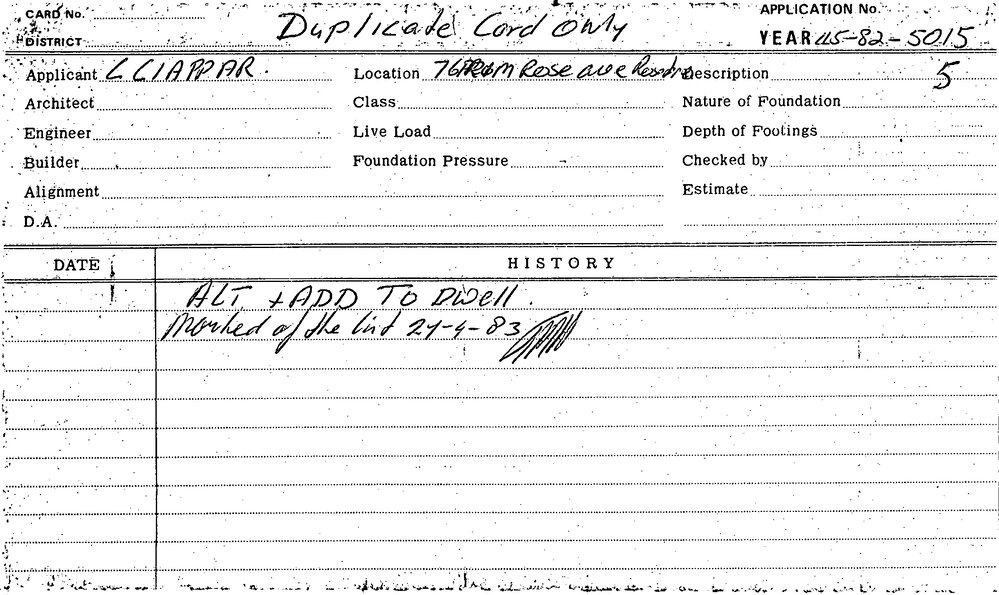 CARD No.
DISTRICT
Duplicate Card Only
APPLICATION No.
YEAR 45-82-5015
Applicant C CIAPPAR.
Location 76 Rose ave
Description 5
Architect
Class
Nature of Foundation
Engineer
Live Load
Depth of Footings
Builder
Foundation Pressure
Checked by
Alignment
Estimate
D.A.
DATE
HISTORY
ALT + ADD TO Dwell.
Marked of the list 27-4-83